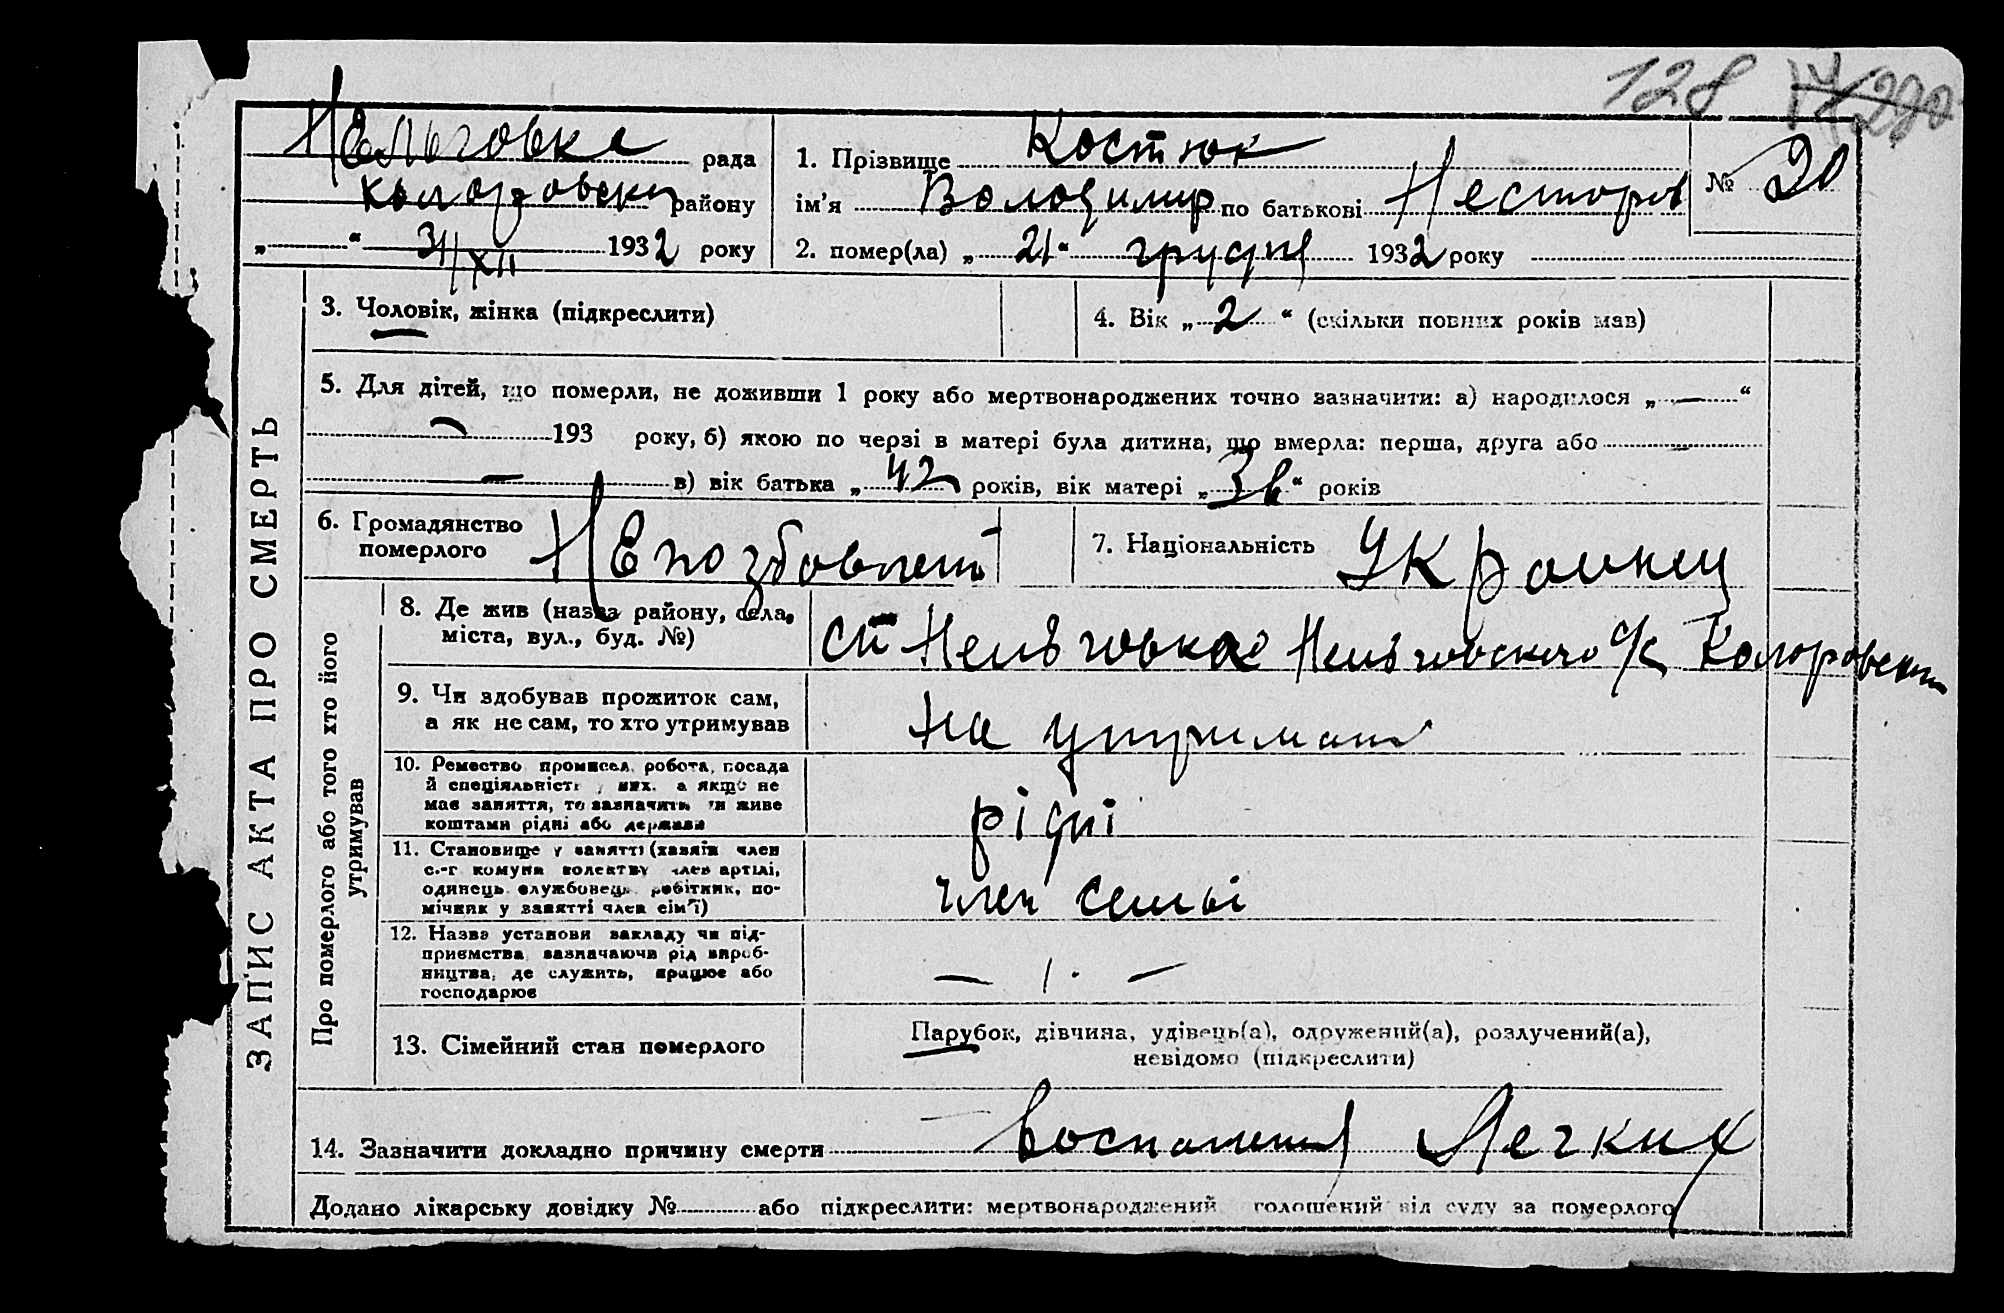 128
Нельговка рада
району
„ “ 31/XII 1932 року
1. Прізвище Костюк
ім'я Володимир по батькові Несторов
№ 20
2. помер(ла) „21“ грудня 1932 року
ЗАПИС АКТА ПРО СМЕРТЬ
3. Чоловік, жінка (підкреслити)
4. Вік „2“ (скільки повних років мав)
5. Для дітей, що померли, не доживши 1 року або мертвонароджених точно зазначити: а) народилося „—“
— 193 року, б) якою по черзі в матері була дитина, що вмерла: перша, друга або —
— в) вік батька „42 років, вік матері „36“ років
6. Громадянство
померлого
7. Національність Украинец
Про померлого або того хто його
утримував
8. Де жив (назва району, села,
міста, вул., буд. №)
ст Нельговка Нельговского с/с
9. Чи здобував прожиток сам,
а як не сам, то хто утримував
на утриманн
10. Ремество, промисел, робота, посада
й спеціяльність у них, а якщо не
має заняття, то зазначить чи живе
коштами рідні або держави
рідні
11. Становище у занятті (хазяїн член
с.-г комуни колективу член артілі,
одинець службовець робітник, по-
мічник у занятті член сім'ї)
член семьі
12. Назва установи закладу чи під-
приємства, зазначаючи рід вироб-
ництва, де служить, працює або
господарює
13. Сімейний стан померлого
Парубок, дівчина, удівець(а), одружений(а), розлучений(а),
невідомо (підкреслити)
14. Зазначити докладно причину смерти Воспаление Легких
Додано лікарську довідку № або підкреслити: мертвонароджений голошений від суду за померлого